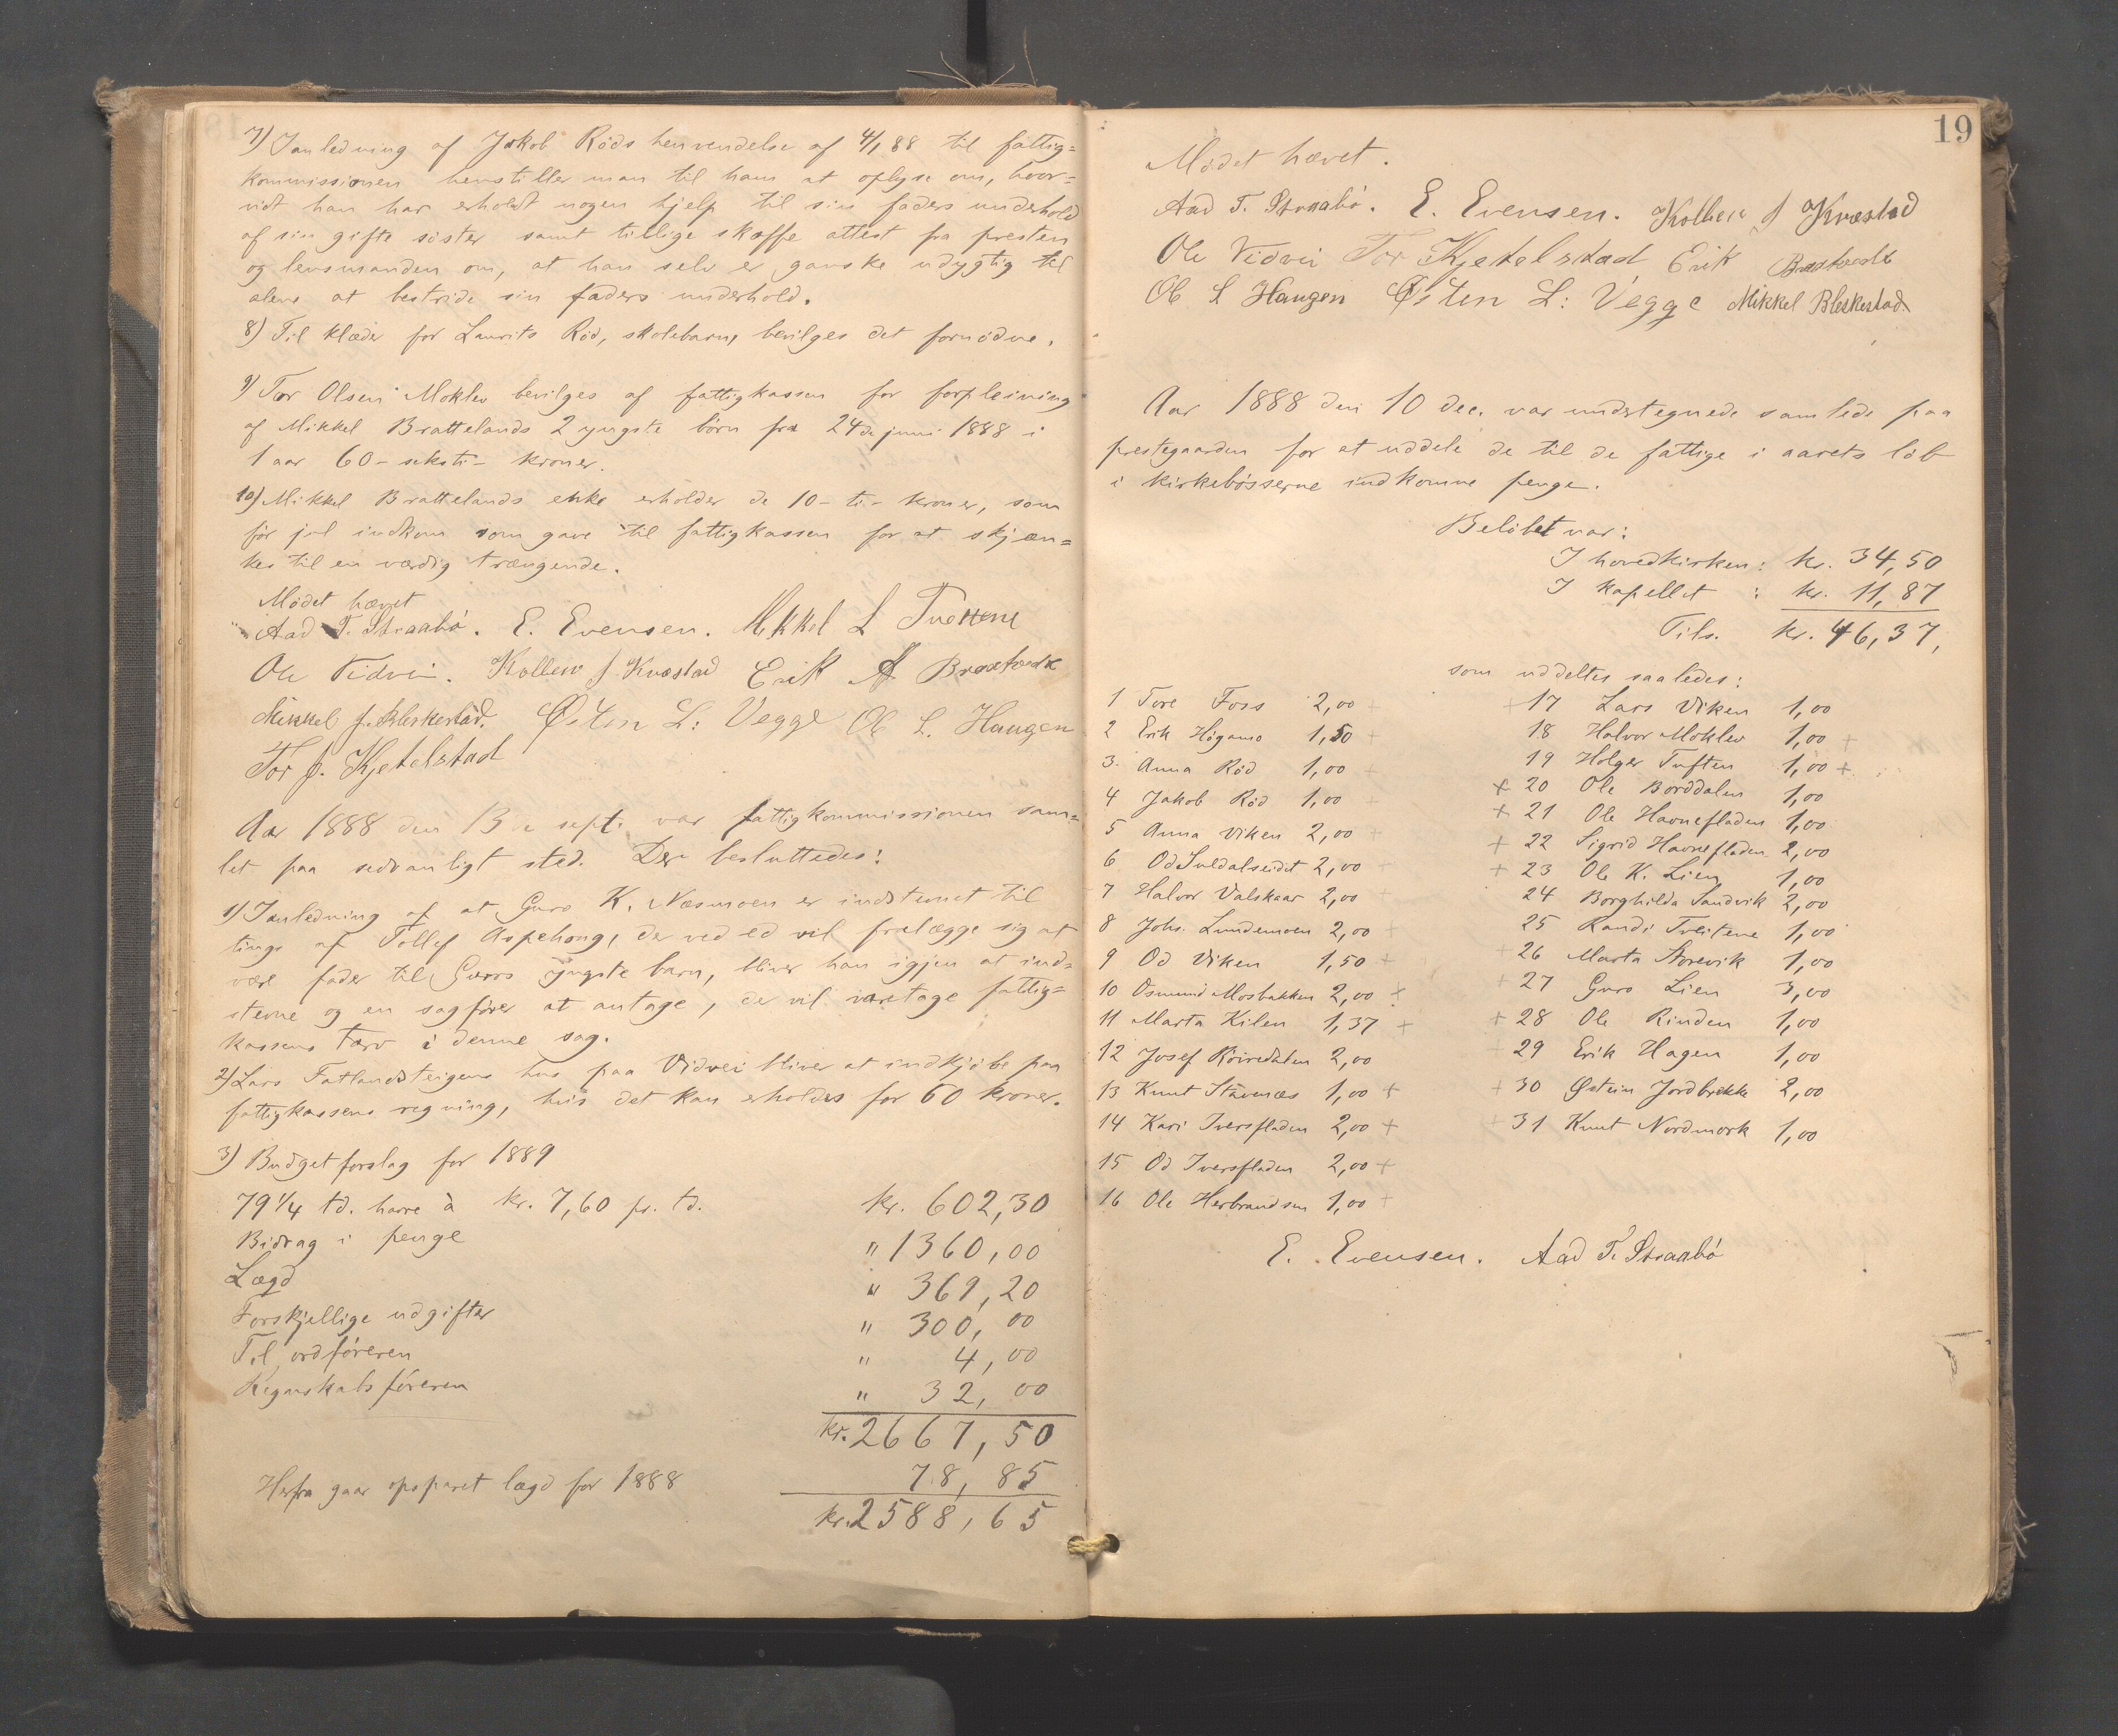 7) I anledning af Jakob Röds henvendelse af 4/1 88 til fattig=
kommissionen henstilles man til ham at oplyse om, hvor=
vidt han har erholdt nogen hjelp til sin faders underhold
af sin gifte söster samt tillige skaffe attest fra presten
og lensmanden om, at han selv er ganske udygtig til
alene at bestride sin faders underhold.
8) Til klæder for Laurits Röd, skolebarn, bevilges det fornödne.
9) Tor Olsen Moklev bevilges af fattigkassen for forpleining
af Mikkel Brattelands 2 yngste börn fra 24de juni 1888 i
1 aar 60 - seksti - kroner.
10) Mikkel Brattelands enke erholder de 10 - ti - kroner, som
för jul indkom som gave til fattigkassen for at skjæn=
kes til en værdig trængende.
Mödet hævet
Aad T. Straabö. E. Evensen. Mikkel L Tveitene
Ole Vidvei. Kolbein J Kvæstad Erik A Bråstvedt
Mikkel J. Bleskestad. Østen L: Vegge Ole L. Haugen
Tor J. Kjetelstad
Aar 1888 den 13de sept. var fattigkommissionen sam=
let paa sedvanligt sted. Der besluttedes:
1) I anledning af at Guro K. Næsmoen er indstevnet til
tings af Tollef Aspehaug, der ved ed vil fralægge sig at
være fader til Guros yngste barn, bliver han igjen at ind=
stevne og en sagförer at antage, der vil varetage fattig=
kassens tarv i denne sag.
2) Lars Fatlandsteigens hus paa Vidvei bliver at indkjöbe paa
fattigkassens regning, hvis det kan erholdes for 60 kroner.
3) Budgetforslag for 1889
79 1/4 td. havre à kr. 7,60 pr. td. kr. 602,30
Bidrag i penge " 1360,00
Lægd " 369,20
Forskjellige udgifter " 300,00
Til ordföreren " 4,00
Regnskabsföreren " 32,00
kr. 2667,50
Herfra gaar opsparet lægd for 1888 78,85
kr. 2588,65
19
Mödet hævet.
Aad T. Straabö. E. Evensen. Kolbein J Kvæstad
Ole Vidvei Tor Kjetelstad Erik Bråstvedt
Ole L Haugen Østen L: Vegge Mikkel Bleskestad
Aar 1888 den 10 dec. var undertegnede samlede paa
prestegaarden for at uddele de til de fattige i aarets löb
i kirkebösserne indkomne penge.
Belöbet var:
I hovedkirken: kr. 34,50
I kapellet : kr. 11,87
Tils. kr. 46,37,
som uddeltes saaledes:
1 Tore Foss 2,00 +
2 Erik Högamo 1,50 +
3. Anna Röd 1,00 +
4 Jakob Röd 1,00 +
5 Anna Viken 2,00 +
6 Od Suldalseidet 2,00
7 Halvor Valskaar 2,00
8 Johs. Lundemoen 2,00 +
9 Od Viken 1,50 +
10 Osmund Mosbakken 2,00 +
11 Marta Kilen 1,37 +
12 Josef Röiredalen 2,00
13 Knut Stavenæs 1,00 +
14 Kari Iversfladen 2,00 +
15 Od Iversfladen 2,00 +
16 Ole Herbrandsen 1,00 +
+ 17 Lars Viken 1,00
18 Halvor Moklev 1,00 +
19 Holger Tuften 1,00 +
+ 20 Ole Borddalen 1,00
+ 21 Ole Havnefladen 1,00
+ 22 Sigrid Havnefladen 2,00
+ 23 Ole K. Lien 1,00
24 Borghilda Sandvik 2,00
25 Randi Tveitene 1,00
+ 26 Marta Storevik 1,00
+ 27 Guro Lien 3,00
+ 28 Ole Rinden 1,00
+ 29 Erik Hagen 1,00
+ 30 Østein Jordbrekke 2,00
+ 31 Knut Nordmork 1,00
E. Evensen. Aad T. Straabö